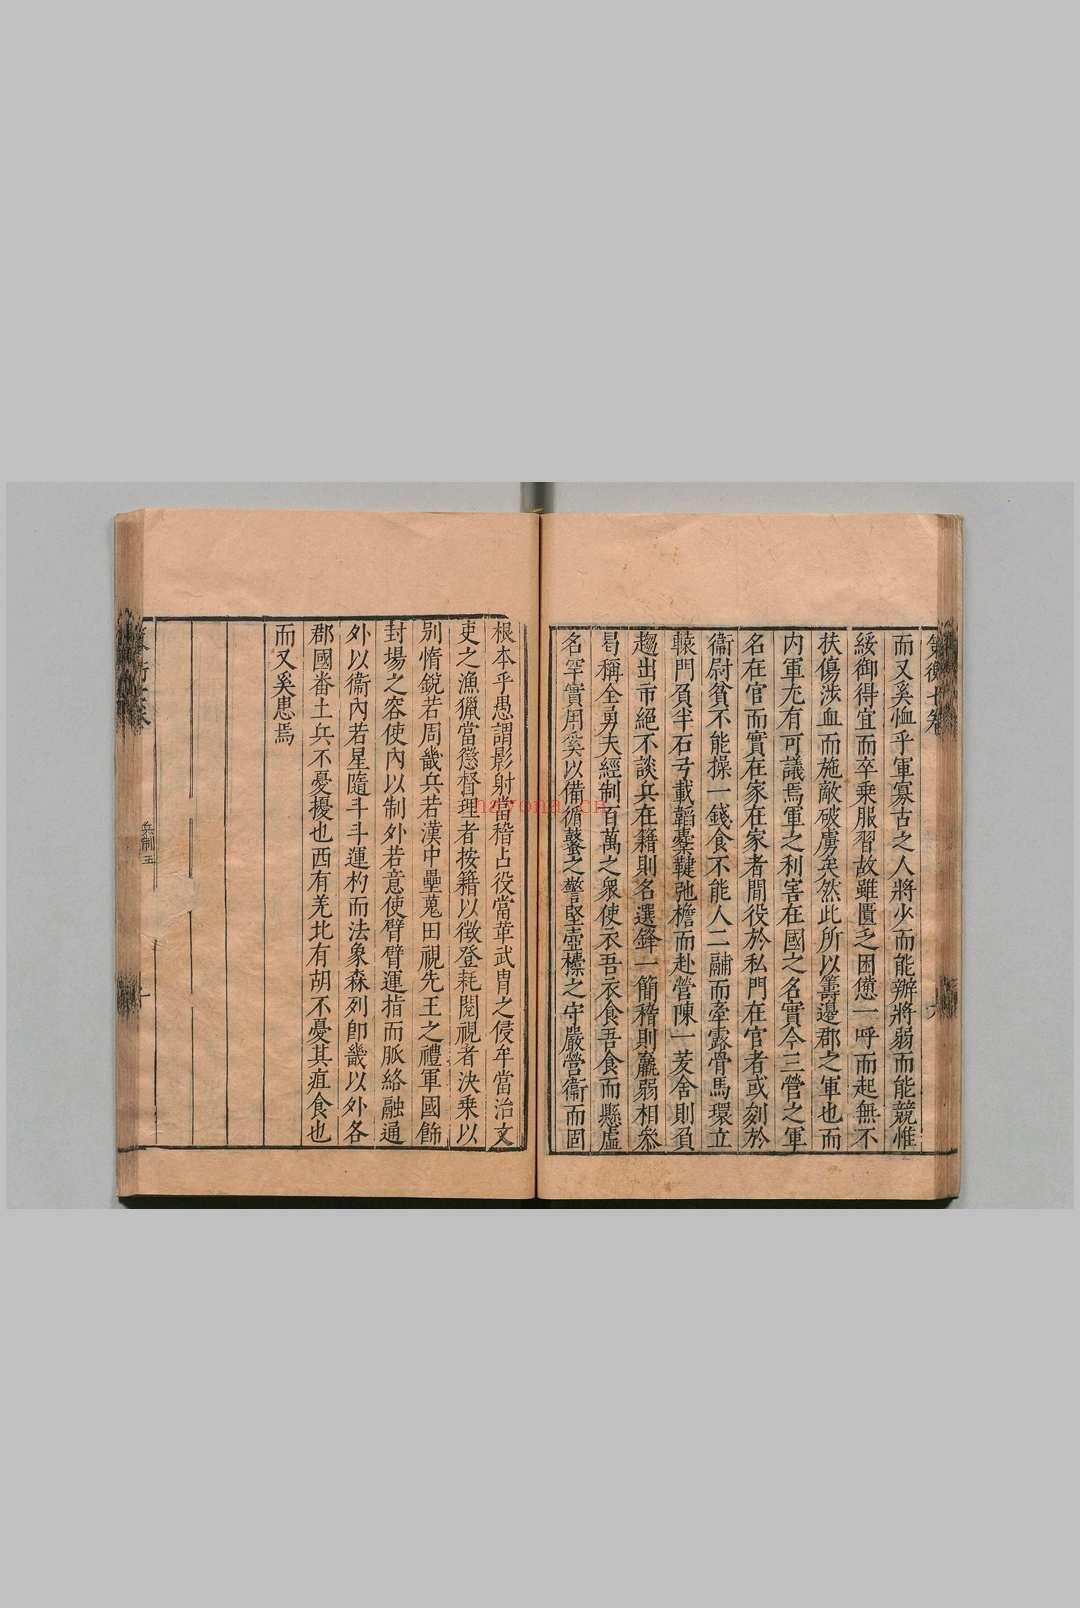 策衡七卷
而又奚恤乎軍寡古之人將少而能辦將弱而能競惟
綏御得宜而卒乗服習故雖匱乏困憊一呼而起無不
扶傷涉血而施敵破虜矣然此所以籌邊郡之軍也而
内軍尤有可議焉軍之利害在國之名實今三營之軍
名在官而實在家在家者間役於私門在官者或刻於
衞尉貧不能操一錢食不能人二鬴而牽露骨馬環立
轅門負半石弓載韜櫜鞬弛檐而赴營陳一茇舍則負
趨出市絕不談兵在籍則名選鋒一簡稽則羸弱相叅
曷稱全勇夫經制百萬之衆使衣吾衣食吾食而懸虛
名罕實用奚以備循鼜之警堅壺檩之守嚴營衞而固
根本乎愚謂影射當稽占役當革武胄之侵牟當治文
吏之漁獵當懲督理者按籍以徵登耗閱視者決乗以
别惰銳若周畿兵若漢中壘蒐田視先王之禮軍國飾
封場之容使内以制外若意使臂臂運指而脈絡融通
外以衞内若星隨斗斗運杓而法象森列卽畿以外各
郡國畨土兵不憂擾也西有羌北有胡不憂其疽食也
而又奚患焉
兵制五
nayona.cn